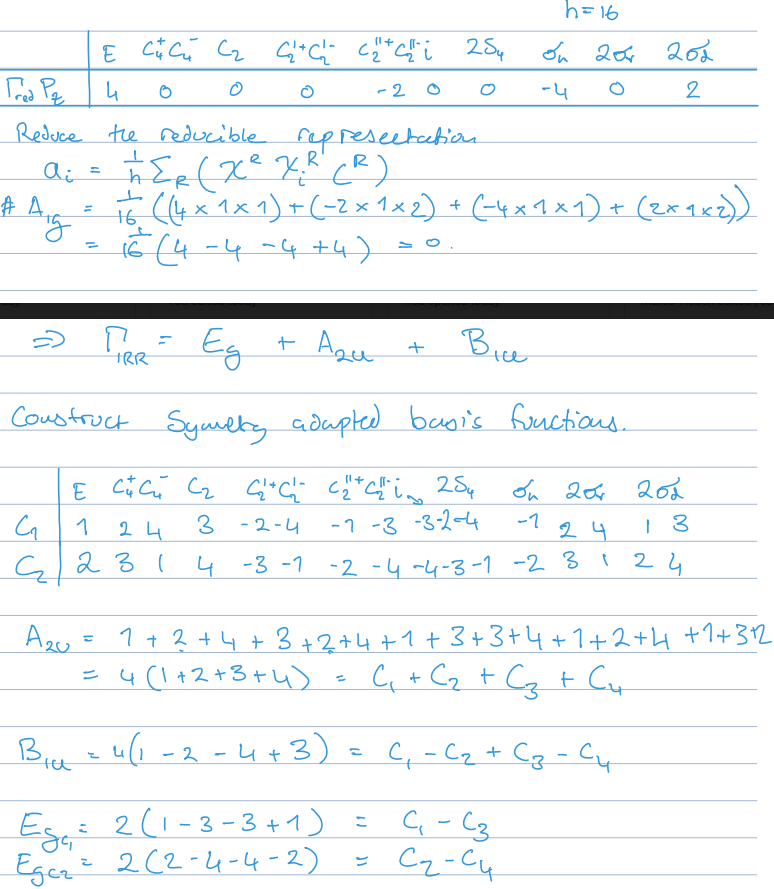 h=16
E C₄⁺C₄⁻ C₂ C₂'⁺C₂'⁻ C₂''⁺C₂''⁻ i 2S₄ σₕ 2σᵥ 2σd
Γred Pz 4 0 0 0 -2 0 0 -4 0 2
Reduce the reducible representation
aᵢ = 1/h Σ_R (χᴿ χᵢᴿ Cᴿ)
# A₁g = 1/16 ((4×1×1)+(-2×1×2)+(-4×1×1)+(2×1×2))
= 1/16 (4 - 4 - 4 + 4) = 0.
⇒ Γ_IRR = Eg + A₂u + B₁u
Construct Symetry adapted basis functions.
E C₄⁺C₄⁻ C₂ C₂'⁺C₂'⁻ C₂''⁺C₂''⁻ i 2S₄ σₕ 2σᵥ 2σd
C₁ 1 2 4 3 -2 -4 -1 -3 -3 -2 -4 -1 2 4 1 3
C₂ 2 3 1 4 -3 -1 -2 -4 -4 -3 -1 -2 3 1 2 4
A₂u = 1+2+4+3+2+4+1+3+3+4+1+2+4+1+3+2
= 4(1+2+3+4) = C₁ + C₂ + C₃ + C₄
B₁u = 4(1-2-4+3) = C₁ - C₂ + C₃ - C₄
Eg c₁ = 2(1-3-3+1) = C₁ - C₃
Eg c₂ = 2(2-4-4-2) = C₂ - C₄